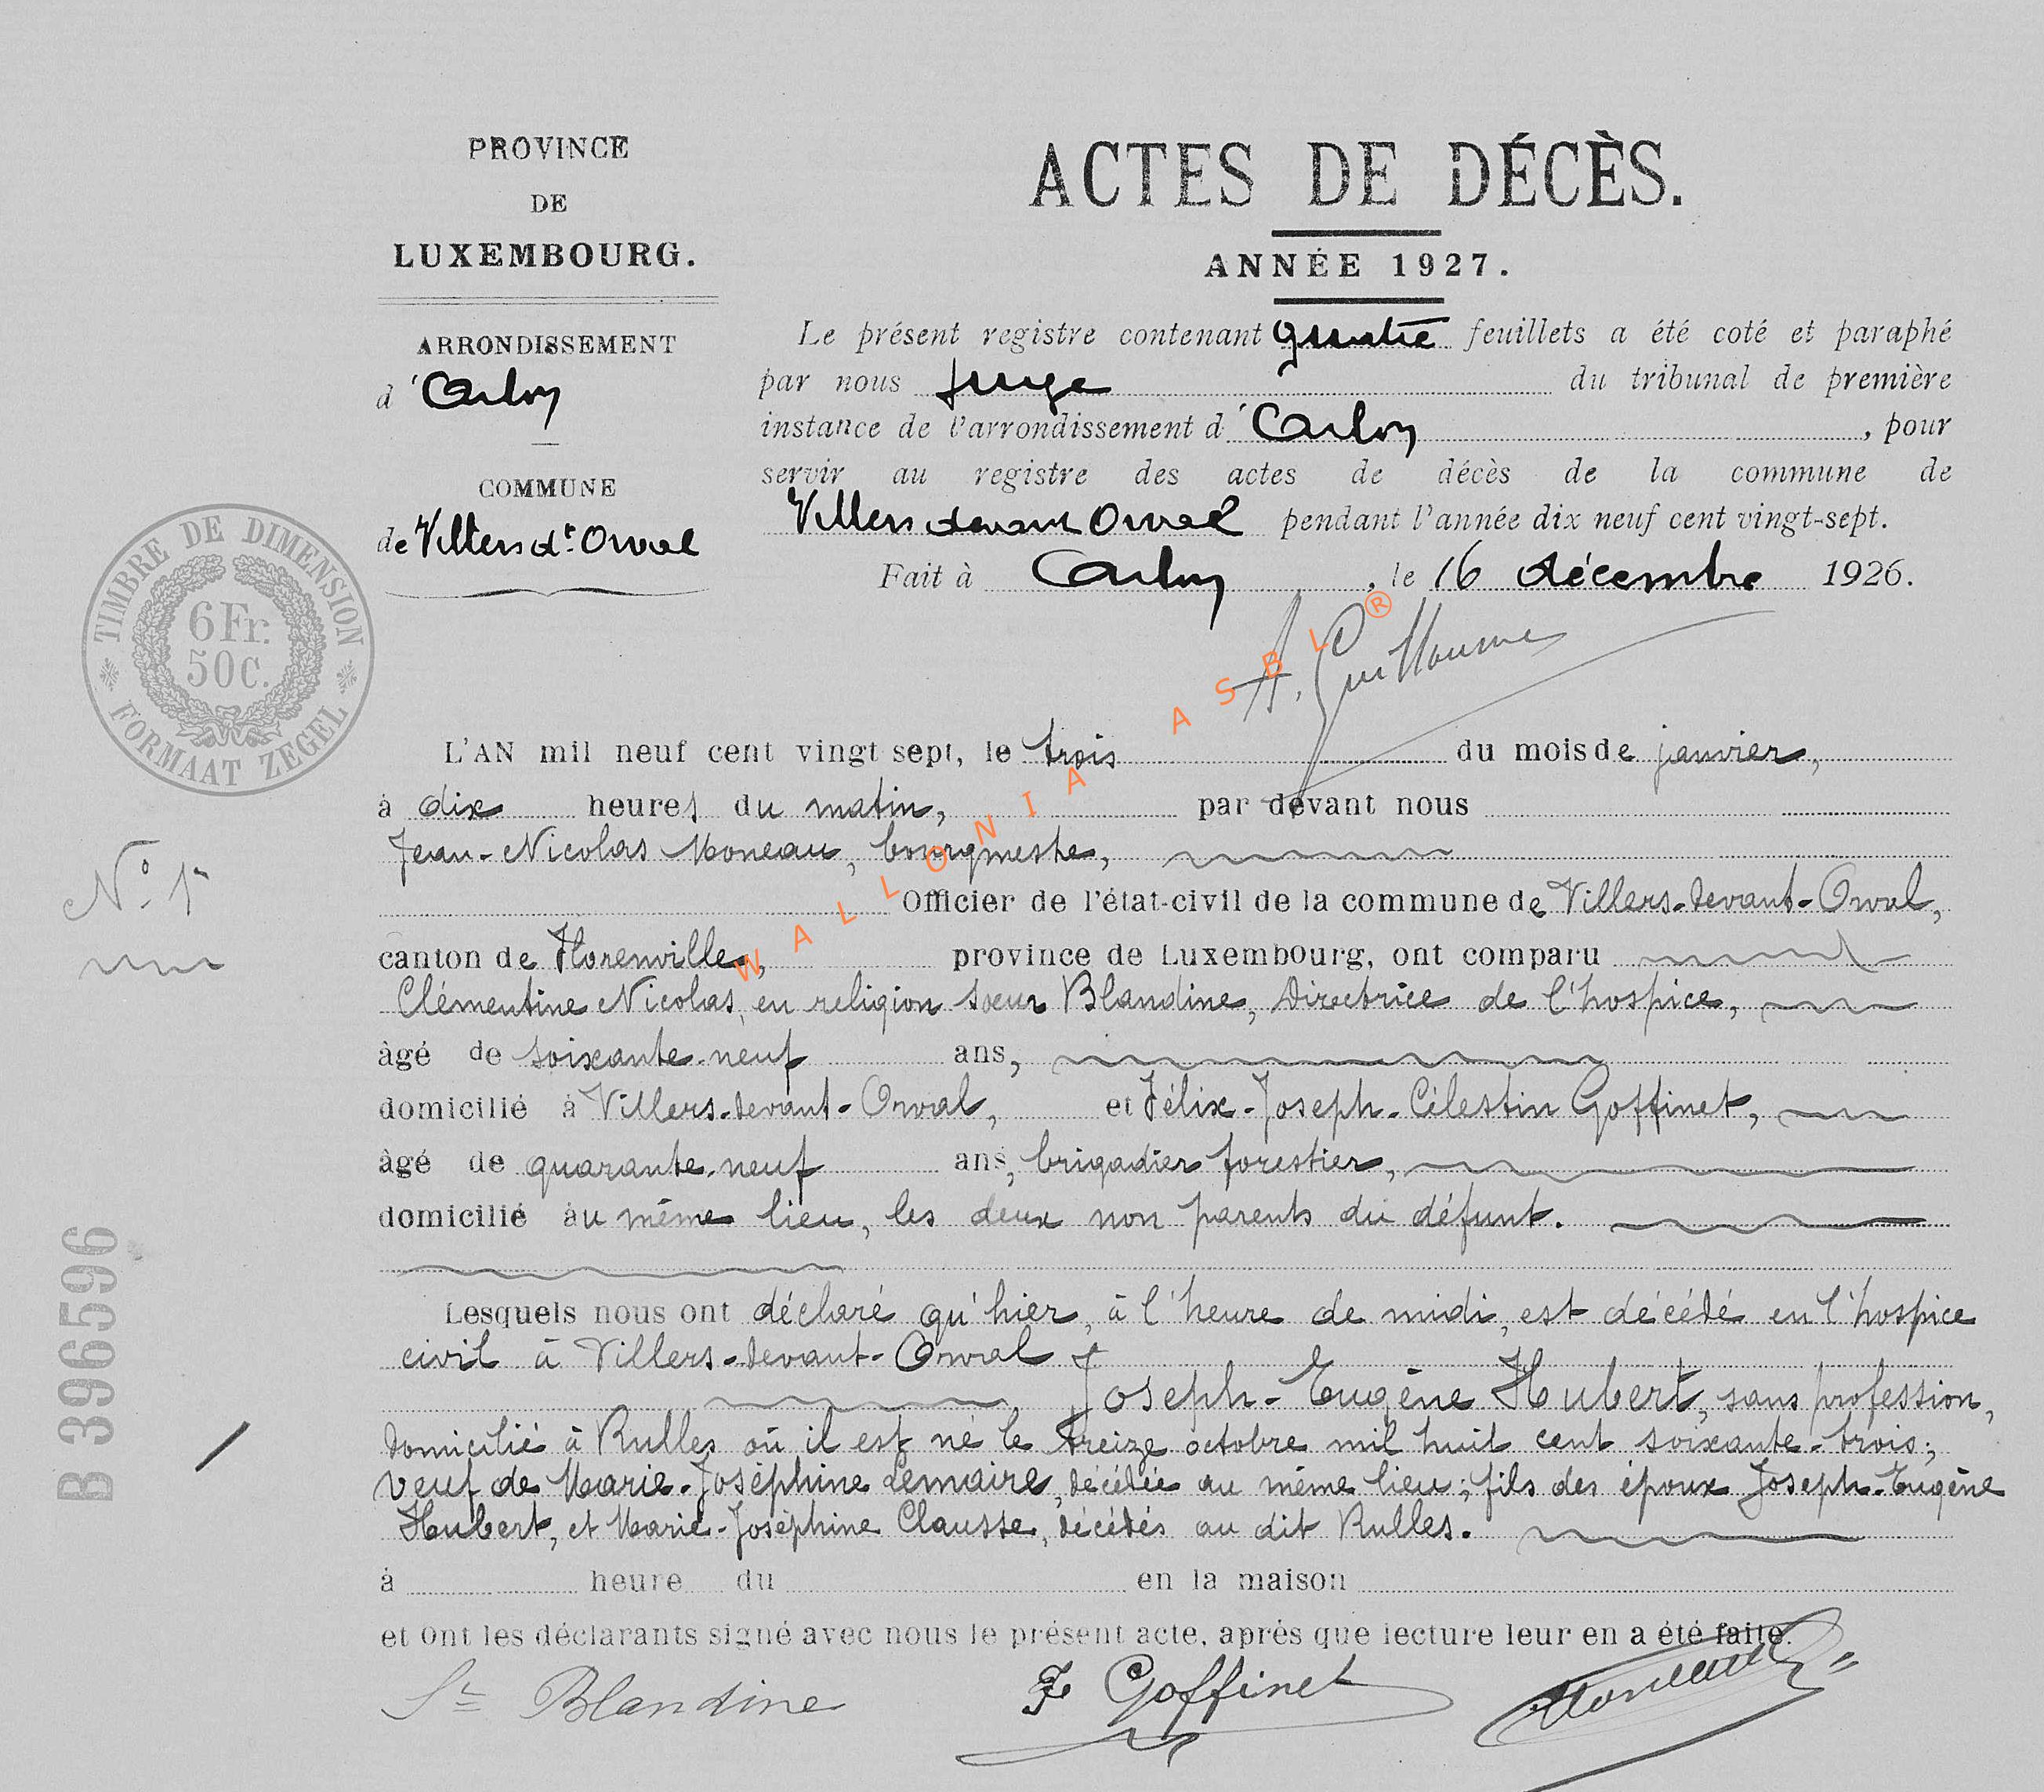 PROVINCE
DE
LUXEMBOURG.
ARRONDISSEMENT
d'Arlon
COMMUNE
de Villers dt Orval
TIMBRE DE DIMENSION
6 Fr.
50 c.
FORMAAT ZEGEL
ACTES DE DÉCÈS.
ANNÉE 1927.
Le présent registre contenant quatre feuillets a été coté et paraphé
par nous Juge du tribunal de première
instance de l'arrondissement d'Arlon, pour
servir au registre des actes de décès de la commune de
Villers devant Orval pendant l'année dix neuf cent vingt-sept.
Fait à Arlon, le 16 décembre 1926.
A. Guillaume
WALLONIA ASBL®
L'AN mil neuf cent vingt sept, le trois du mois de janvier,
à dix heures du matin, par devant nous
Jean-Nicolas Moneau, bourgmestre,
Officier de l'état-civil de la commune de Villers-devant-Orval,
N° 1
canton de Florenville, province de Luxembourg, ont comparu
Clémentine Nicolas, en religion sœur Blandine, Directrice de l'hospice,
âgé de soixante-neuf ans,
domicilié à Villers-devant-Orval, et Félix-Joseph-Célestin Goffinet,
âgé de quarante-neuf ans, brigadier forestier,
domicilié au même lieu, les deux non parents du défunt.
Lesquels nous ont déclaré qu'hier, à l'heure de midi, est décédé en l'hospice
civil à Villers-devant-Orval
Joseph-Eugène Hubert, sans profession,
domicilié à Rulles où il est né le treize octobre mil huit cent soixante-trois;
veuf de Marie-Joséphine Lemaire, décédée au même lieu; fils des époux Joseph-Eugène
Hubert, et Marie-Joséphine Clausse, décédés au dit Rulles.
à heure du en la maison
et ont les déclarants signé avec nous le présent acte, après que lecture leur en a été faite.
Sr Blandine F Goffinet Moneau
B 396596